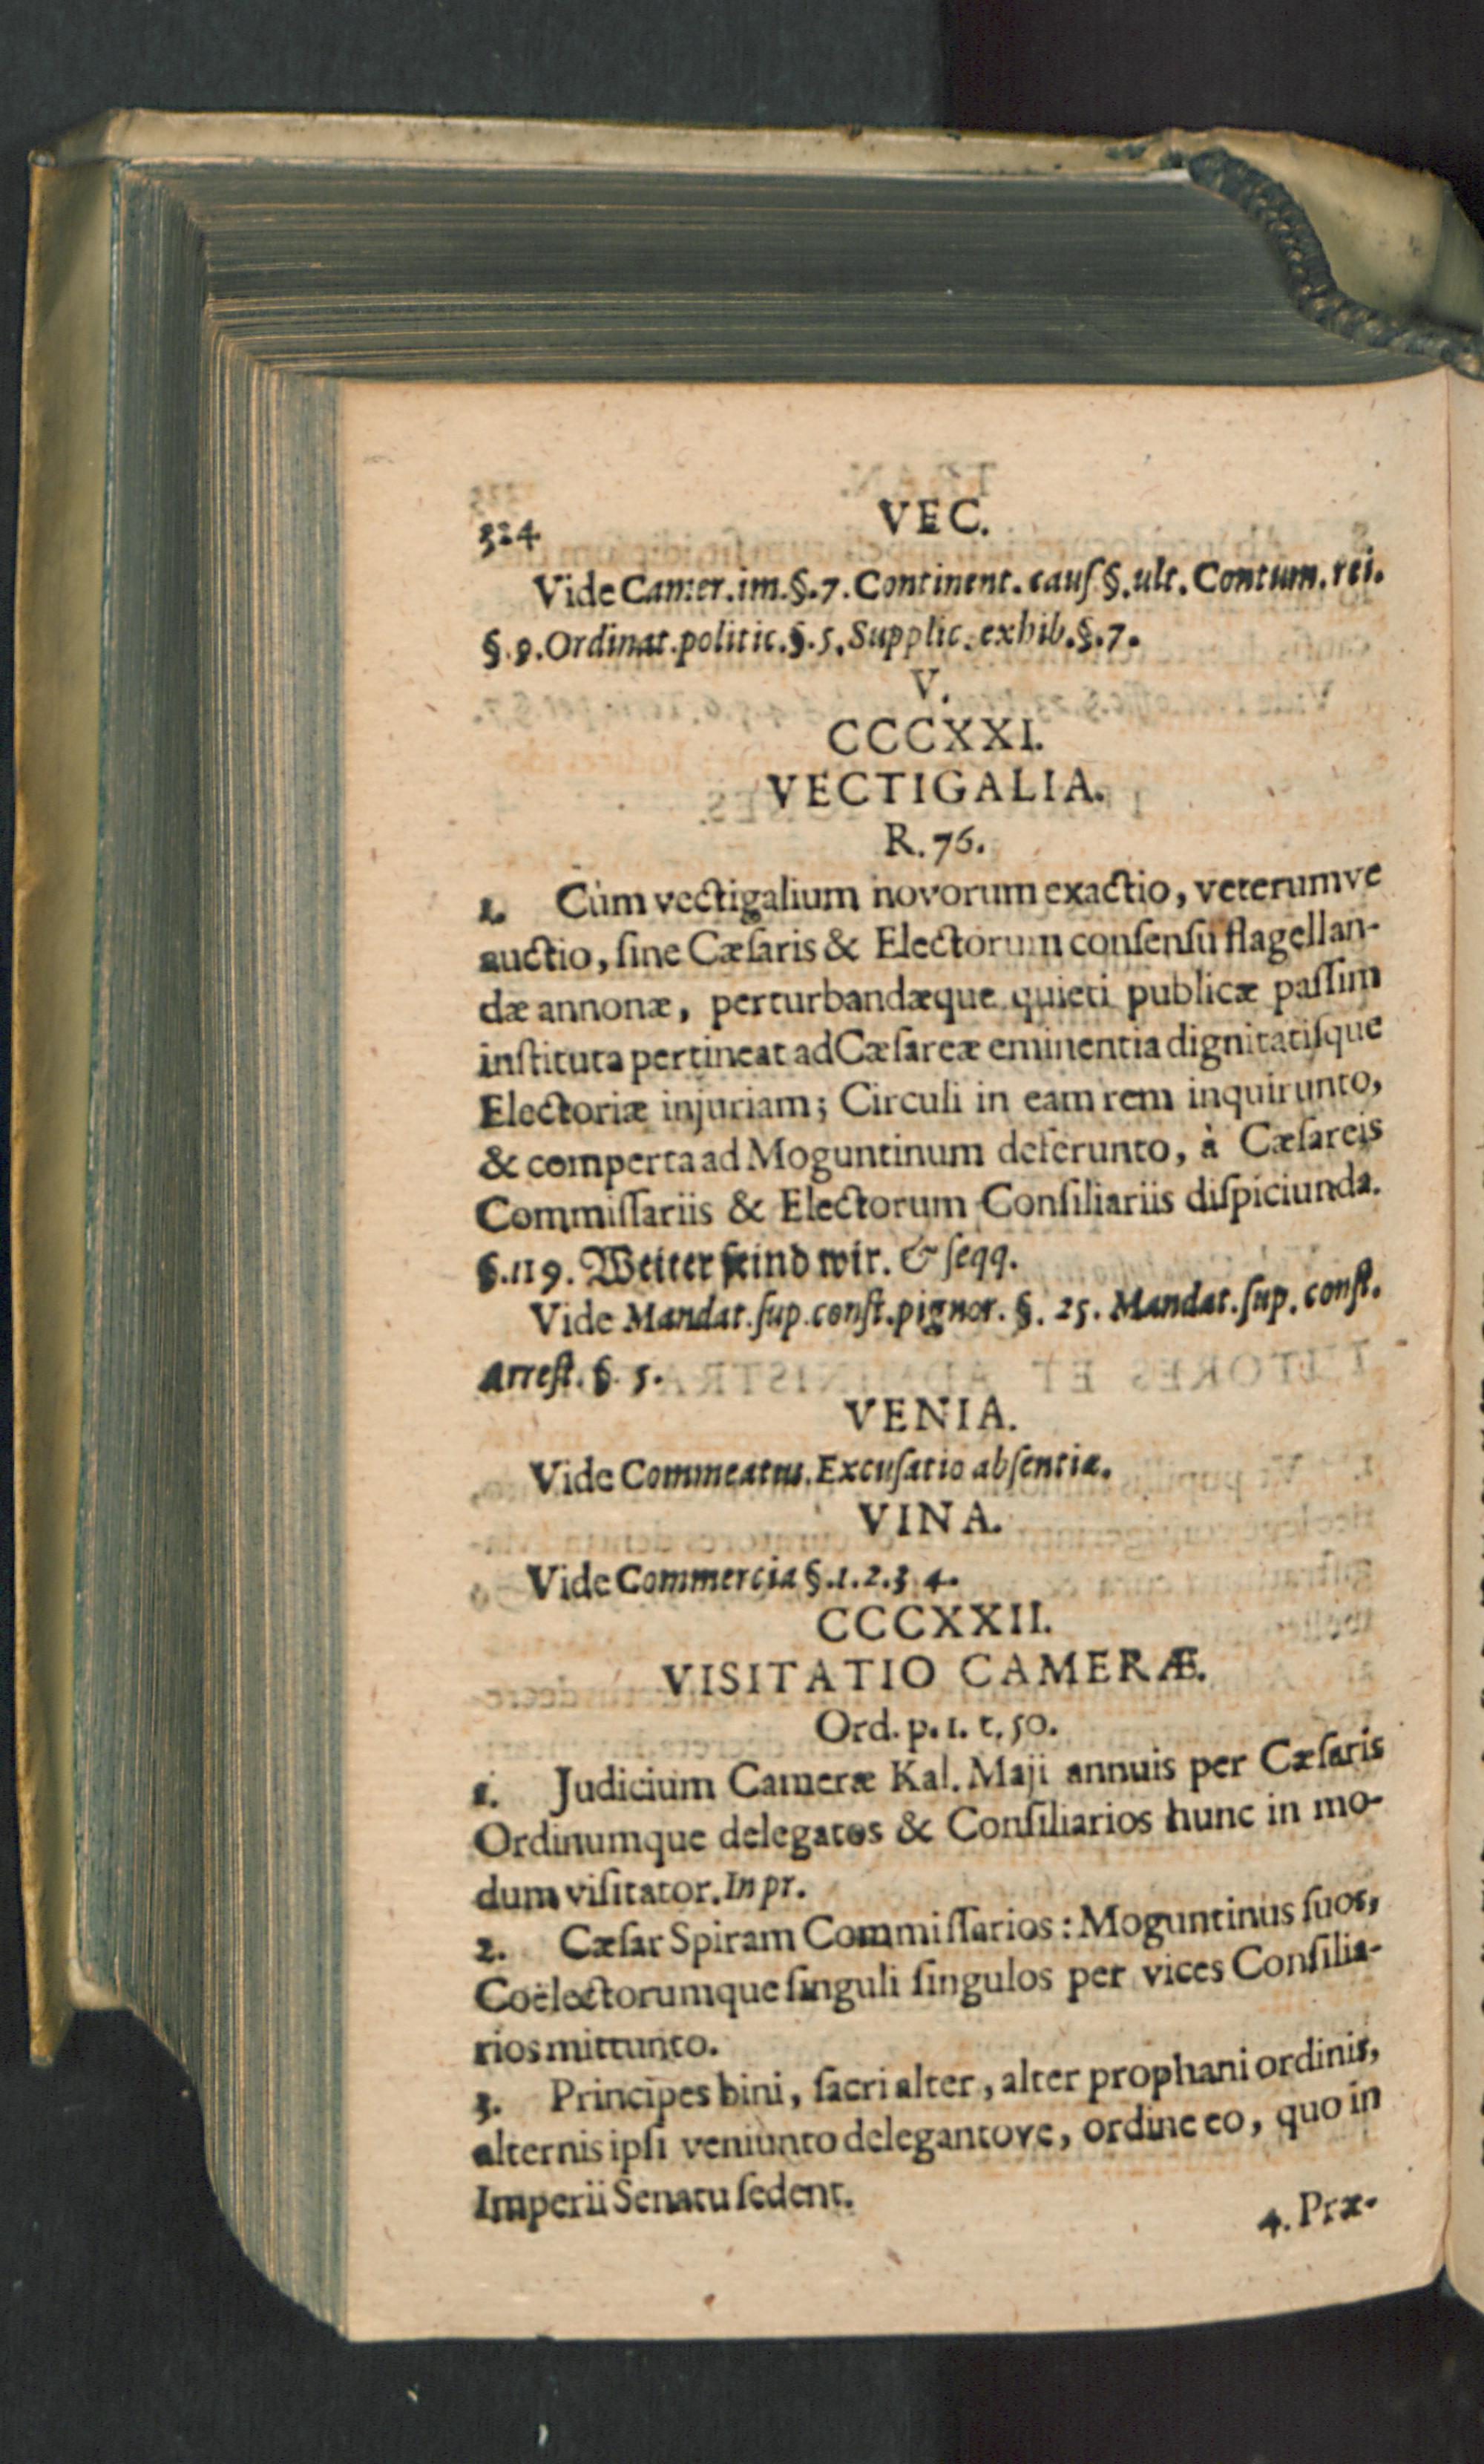 324
VEC.
Vide Camer.im.§.7.Continent.cauſ.§.ult.Contum.rei.
§.9.Ordinat.politic.§.5.Supplic.exhib.§.7.
V.
CCCXXI.
VECTIGALIA.
R.76.
1. Cùm vectigalium novorum exactio, veterumve
auctio, ſine Cæſaris & Electorum conſenſu flagellan-
dæ annonæ, perturbandæque quieti publicæ paſſim
inſtituta pertineat ad Cæſareæ eminentia dignitatiſque
Electoriæ injuriam; Circuli in eam rem inquirunto,
& comperta ad Moguntinum deferunto, à Cæſareis
Commiſſariis & Electorum Conſiliariis diſpiciunda.
§.119. Weiter ſeind wir. & ſeqq.
Vide Mandat.ſup.conſt.pignor. §. 25. Mandat.ſup.conſt.
Arreſt. §. 5.
VENIA.
Vide Commeatus. Excuſatio abſentiæ.
VINA.
Vide Commercia §.1.2.3 4.
CCCXXII.
VISITATIO CAMERÆ.
Ord. p. 1. t. 50.
1. Judicium Cameræ Kal. Maji annuis per Cæſaris
Ordinumque delegatos & Conſiliarios hunc in mo-
dum viſitator. In pr.
2. Cæſar Spiram Commiſſarios: Moguntinus ſuos,
Coëlectorumque ſinguli ſingulos per vices Conſilia-
rios mittunto.
3. Principes bini, ſacri alter, alter prophani ordinis,
alternis ipſi veniunto delegantove, ordine eo, quo in
Imperii Senatu ſedent.
4. Præ-